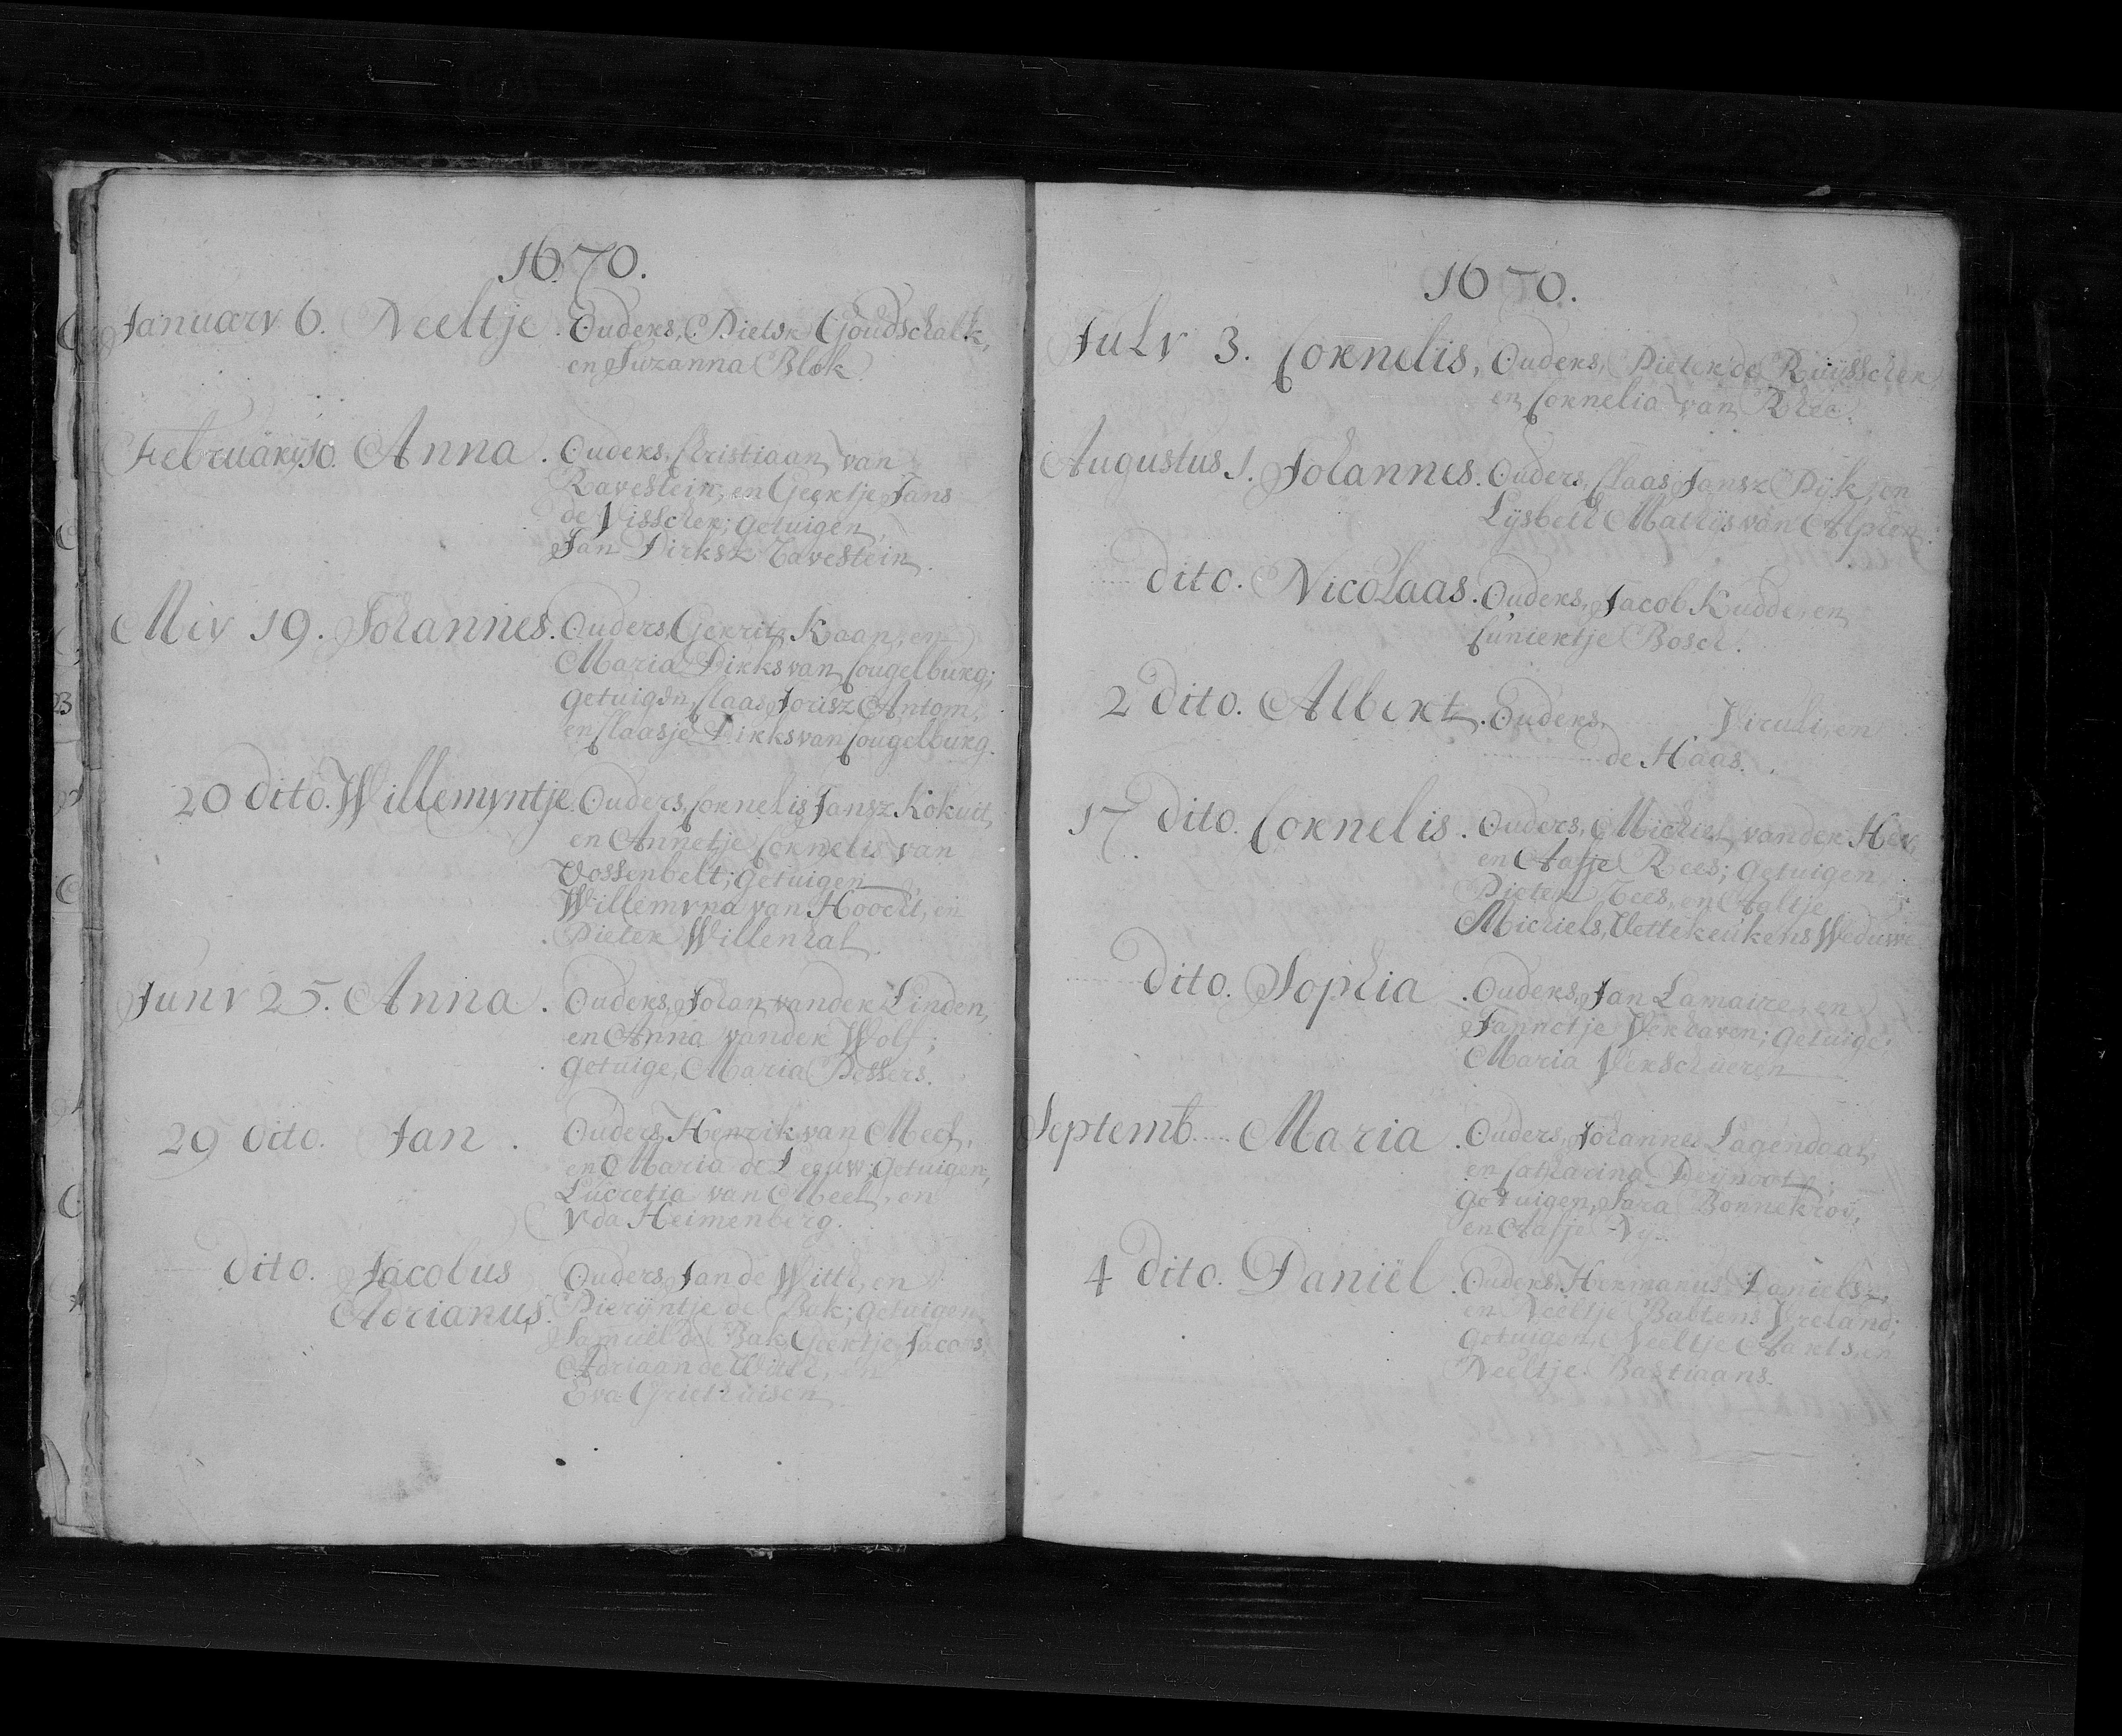 1670.
January 6. Neeltje. Ouders, Pieter Goudschalk,
en Suzanna Blok.
February 10. Anna. Ouders, Christiaan van
Ravestein, en Geertje Jans
de Visscher; getuigen
Jan Dirksz Ravestein.
Mey 19. Johannes. Ouders, Gerrit Kaan, en
Maria Dirks van Cougelburg;
getuigen, Claas Jorisz Antom,
en Claasje Dirks van Cougelburg.
20 dito. Willemyntje. Ouders, Cornelis Jansz Kokuit,
en Annetje Cornelis van
Vossenbelt; getuigen
Willemyna van Hoocht, en
Pieter Willenhal.
Juny 25. Anna. Ouders, Johan vander Linden,
en Anna vander Wolf;
getuige, Maria Pessers.
29 dito. Jan. Ouders, Henrik van Meel,
en Maria de Leeuw; getuigen,
Lucretia van Meel, en
Yda Heimenberg.
dito. Jacobus Ouders, Jan de Witte, en
Adrianus. Pieryntje de Bak; getuigen
Samuël de Bak, Geertje Jacobs,
Adriaan de Witte, en
Eva Griethuisen.
1670.
July 3. Cornelis, Ouders, Pieter de Ruysscher,
en Cornelia van Rhee.
Augustus 1. Johannes. Ouders, Claas Jansz Dijk, en
Lysbeth Mathys van Alphen.
dito. Nicolaas. Ouders, Jacob Kudde, en
Cuniertje Bosch.
2 dito. Albert. Ouders, Viruli, en
de Haas.
17 dito. Cornelis. Ouders, Michiel vander Hey,
en Aafje Rees; getuigen
Pieter Rees, en Aaltje
Michiels, Vettekeukens Weduwe.
dito. Sophia. Ouders, Jan Lamaire, en
Jannetje Verhaven; getuige
Maria Verschueren
Septemb. Maria. Ouders, Johannes Lagendaal,
en Catharina Deynoot;
getuigen, Sara Bonnekroy,
en Aafje
4 dito. Daniël. Ouders, Hermanus Danielsz,
en Neeltje Bastens Vreland;
getuigen, Neeltje Aarts, en
Neeltje Bastiaans.